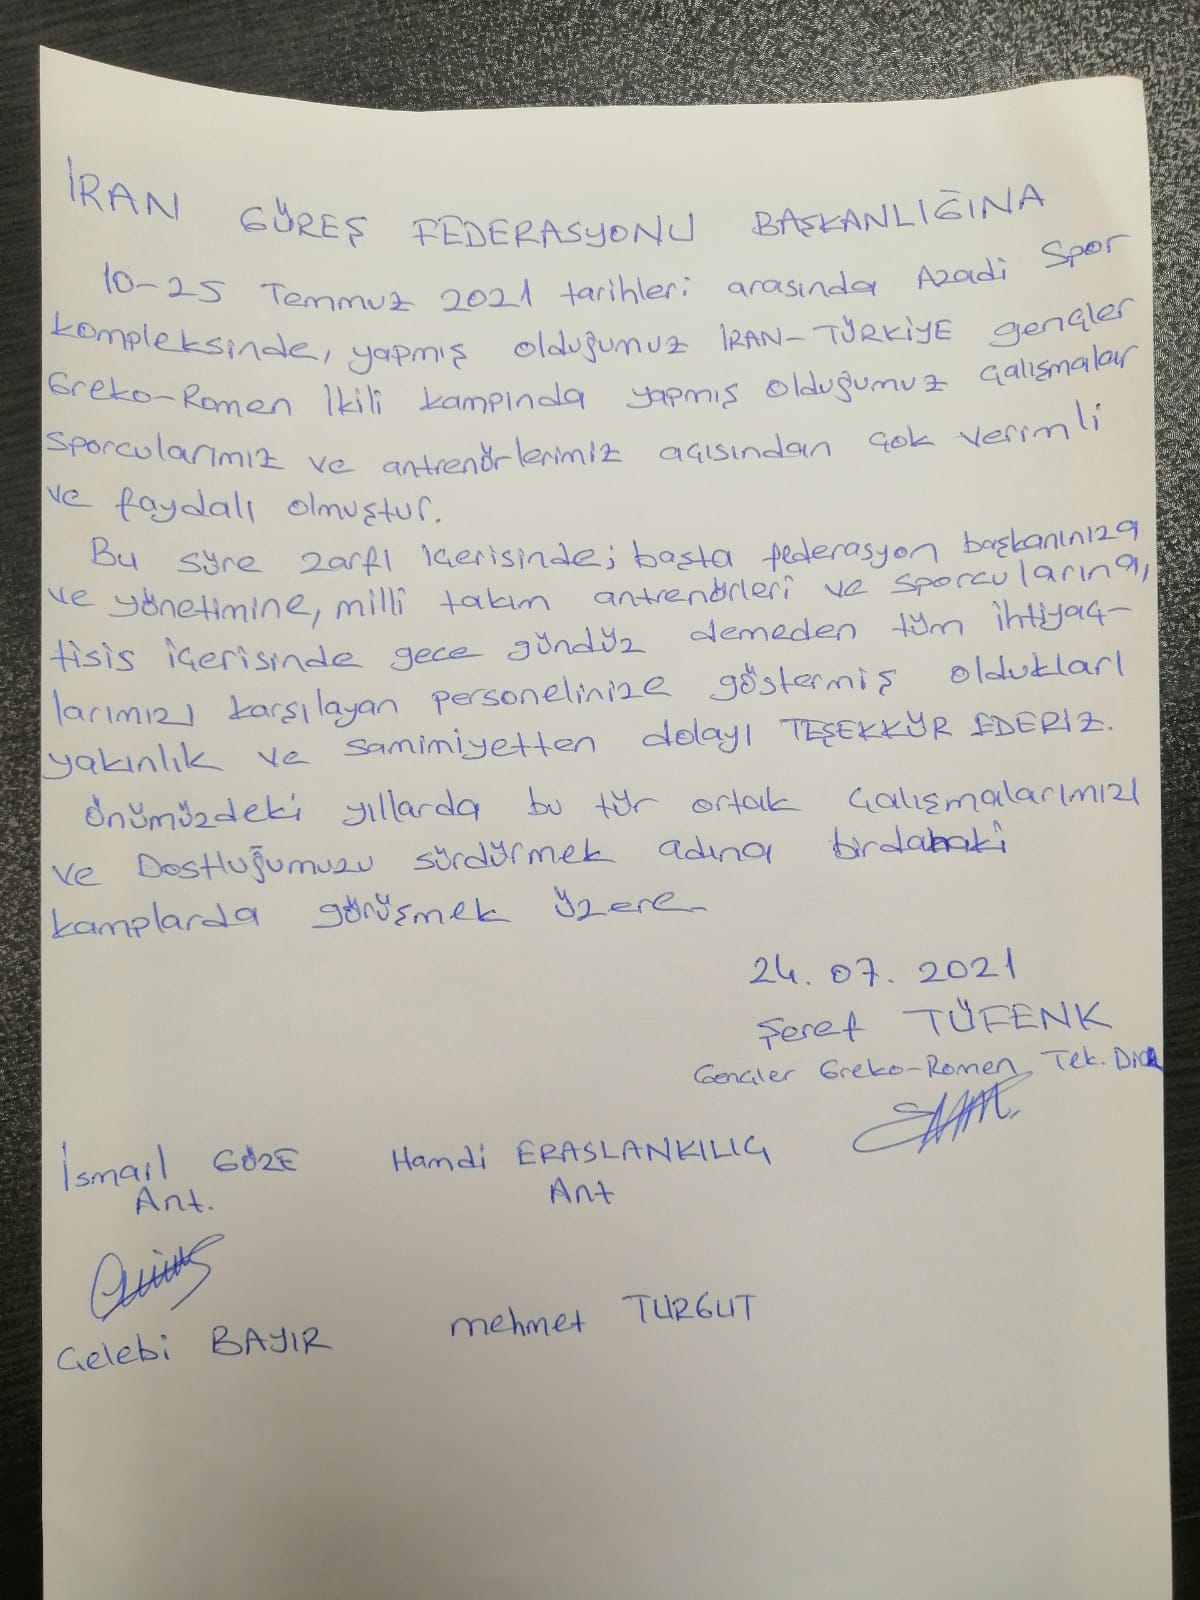 İRAN GÜREŞ FEDERASYONU BAŞKANLIĞINA
10-25 Temmuz 2021 tarihleri arasında Azadi Spor
kompleksinde, yapmış olduğumuz İRAN-TÜRKİYE gençler
Greko-Romen İkili kampında yapmış olduğumuz çalışmalar
sporcularımız ve antrenörlerimiz açısından çok verimli
ve faydalı olmuştur.
Bu süre zarfı içerisinde; başta federasyon başkanınıza
ve yönetimine, milli takım antrenörleri ve sporcularına,
tisis içerisinde gece gündüz demeden tüm ihtiyaç-
larımızı karşılayan personelinize göstermiş oldukları
yakınlık ve samimiyetten dolayı TEŞEKKÜR EDERİZ.
Önümüzdeki yıllarda bu tür ortak çalışmalarımızı
ve Dostluğumuzu sürdürmek adına birdahaki
kamplarda görüşmek üzere
24.07.2021
Şeref TÜFENK
Gençler Greko-Romen Tek. Dir
İsmail GÖZE Hamdi ERASLANKILIÇ
Ant. Ant
Çelebi BAYIR mehmet TURGUT